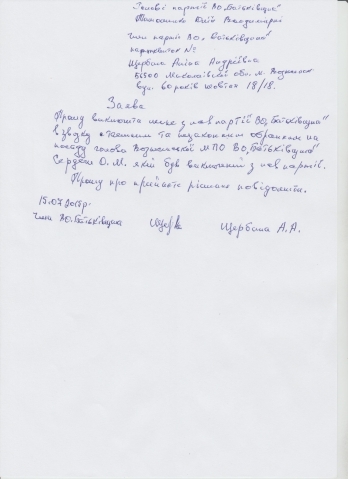 Голові партії ВО„Батьківщина"
Тимошенко Юлії Володимирівні
Член партії ВО„Батьківщина"
партквиток №
Щербина Аліна Андріївна
56500 Миколаївська обл. м. Вознесенськ
вул. 60 років Жовтня 18/18.
Заява
Прошу виключити мене з лав партії ВО„Батьківщина"
в звязку з та незаконним обранням на
посаду голова Вознесенської МПО ВО„Батьківщина"
Сердюк О.М. який був виключений з лав партії.
Прошу про прийняте рішення повідомити.
15.07.2015р.
Член ВО„Батьківщина
Щербина А.А.